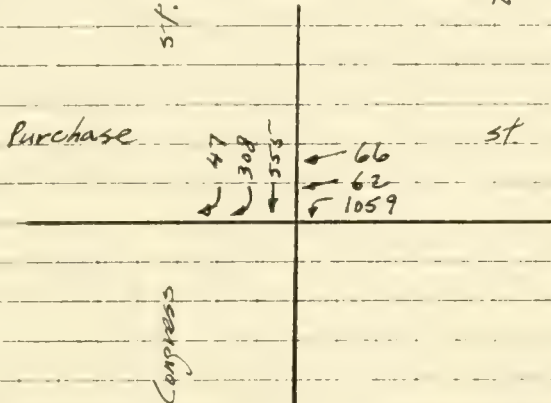 st.
Purchase
st.
47
308
555
66
62
1059
Congress